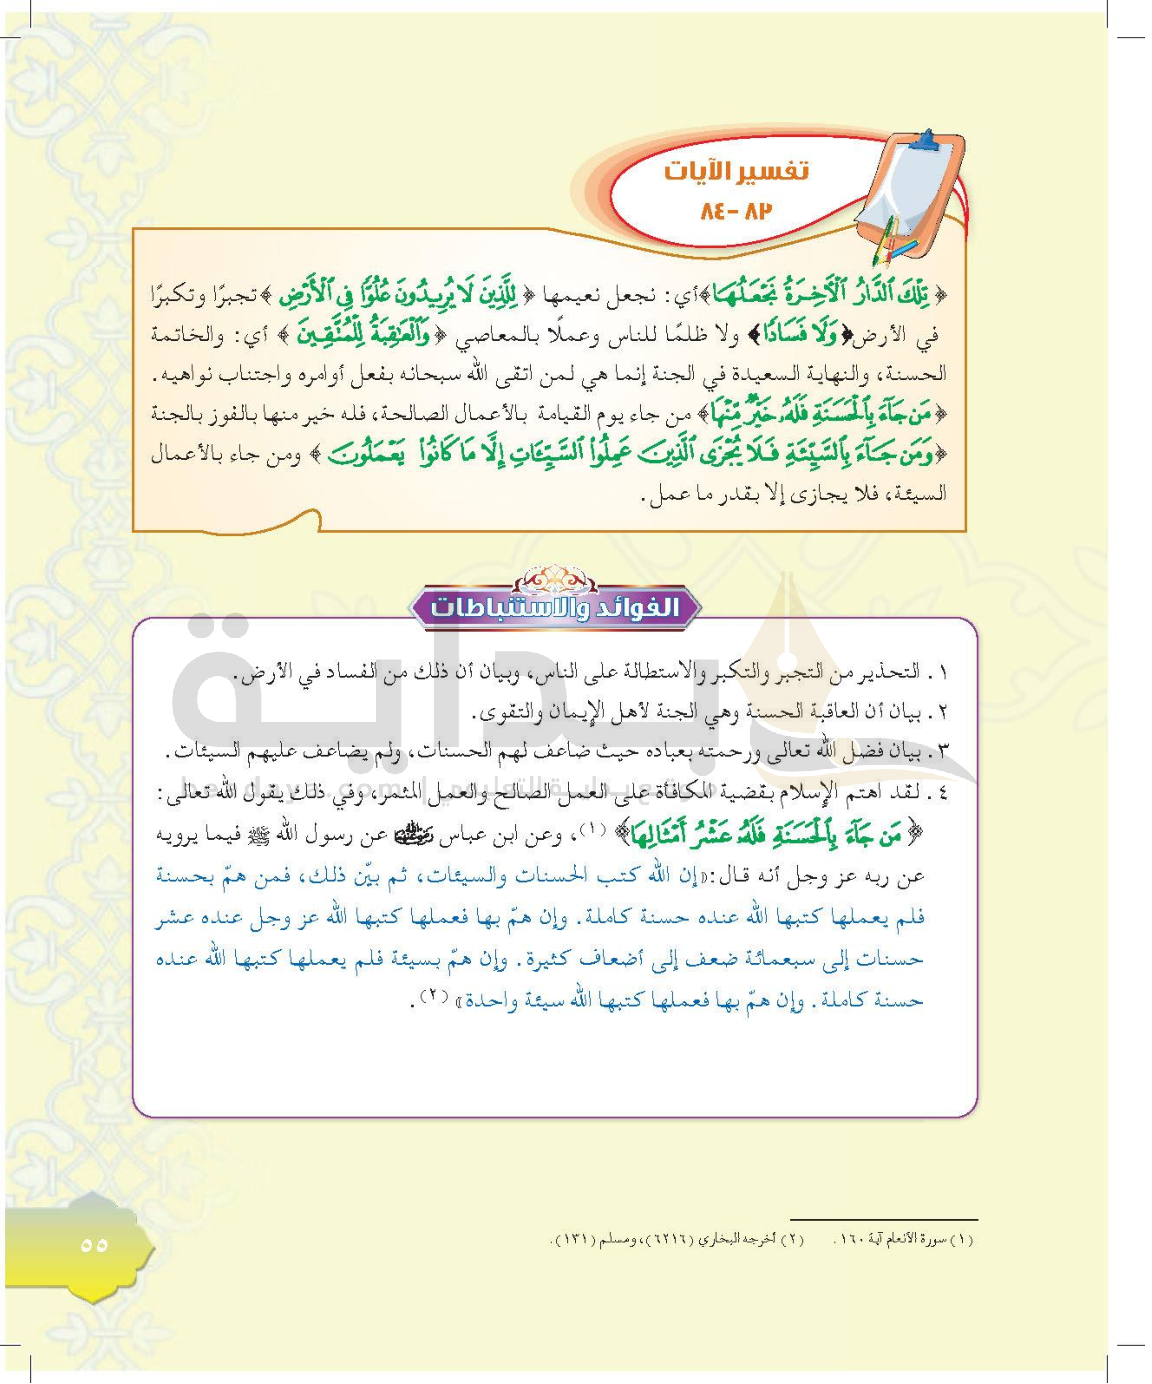 تفسير الآيات
٨٢ -٨٤
﴿ تِلْكَ ٱلدَّارُ ٱلْأَخِرَةُ نَجْعَلُهَا﴾أي: نجعل نعيمها ﴿ لِلَّذِينَ لَا يُرِيدُونَ عُلُوًّا فِى ٱلْأَرْضِ ﴾تجبرًا وتكبرًا
في الأرض﴿وَلَا فَسَادًا﴾ ولا ظلمًا للناس وعملًا بالمعاصي ﴿ وَٱلْعَٰقِبَةُ لِلْمُتَّقِينَ ﴾ أي: والخاتمة
الحسنة، والنهاية السعيدة في الجنة إنما هي لمن اتقى الله سبحانه بفعل أوامره واجتناب نواهيه.
﴿مَن جَآءَ بِٱلْحَسَنَةِ فَلَهُۥ خَيْرٌ مِّنْهَا﴾ من جاء يوم القيامة بالأعمال الصالحة، فله خير منها بالفوز بالجنة
﴿وَمَن جَآءَ بِٱلسَّيِّئَةِ فَلَا يُجْزَى ٱلَّذِينَ عَمِلُوا۟ ٱلسَّيِّـَٔاتِ إِلَّا مَا كَانُوا۟ يَعْمَلُونَ ﴾ ومن جاء بالأعمال
السيئة، فلا يجازى إلا بقدر ما عمل.
الفوائد والاستنباطات
١. التحذير من التجبر والتكبر والاستطالة على الناس، وبيان أن ذلك من الفساد في الأرض.
٢. بيان أن العاقبة الحسنة وهي الجنة لأهل الإيمان والتقوى.
بداية
٣. بيان فضل الله تعالى ورحمته بعباده حيث ضاعف لهم الحسنات، ولم يضاعف عليهم السيئات.
٤. لقد اهتم الإسلام بقضية المكافأة على العمل الصالح والعمل المثمر، وفي ذلك يقول الله تعالى:
﴿ مَن جَآءَ بِٱلْحَسَنَةِ فَلَهُۥ عَشْرُ أَمْثَالِهَا﴾ (١)، وعن ابن عباس رضي الله عنهما عن رسول الله ﷺ فيما يرويه
عن ربه عز وجل أنه قال:«إن الله كتب الحسنات والسيئات، ثم بيّن ذلك، فمن همّ بحسنة
فلم يعملها كتبها الله عنده حسنة كاملة. وإن همّ بها فعملها كتبها الله عز وجل عنده عشر
حسنات إلى سبعمائة ضعف إلى أضعاف كثيرة. وإن همّ بسيئة فلم يعملها كتبها الله عنده
حسنة كاملة. وإن همّ بها فعملها كتبها الله سيئة واحدة» (٢).
(١) سورة الأنعام آية ١٦٠. (٢) أخرجه البخاري (٦٢١٦)، ومسلم (١٣١).
٥٥